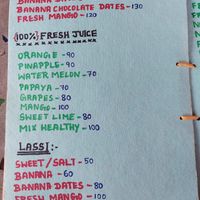 BANANA CHOCOLATE DATES-130
FRESH MANGO -120
{100%} FRESH JUICE
ORANGE -90
PINAPPLE-90
WATER MELON-70
PAPAYA -70
GRAPES-80
MANGO -100
SWEET LIME-80
MIX HEALTHY -100
LASSI:-
SWEET/SALT-50
BANANA -60
BANANA DATES-80
FRESH MANGO -100